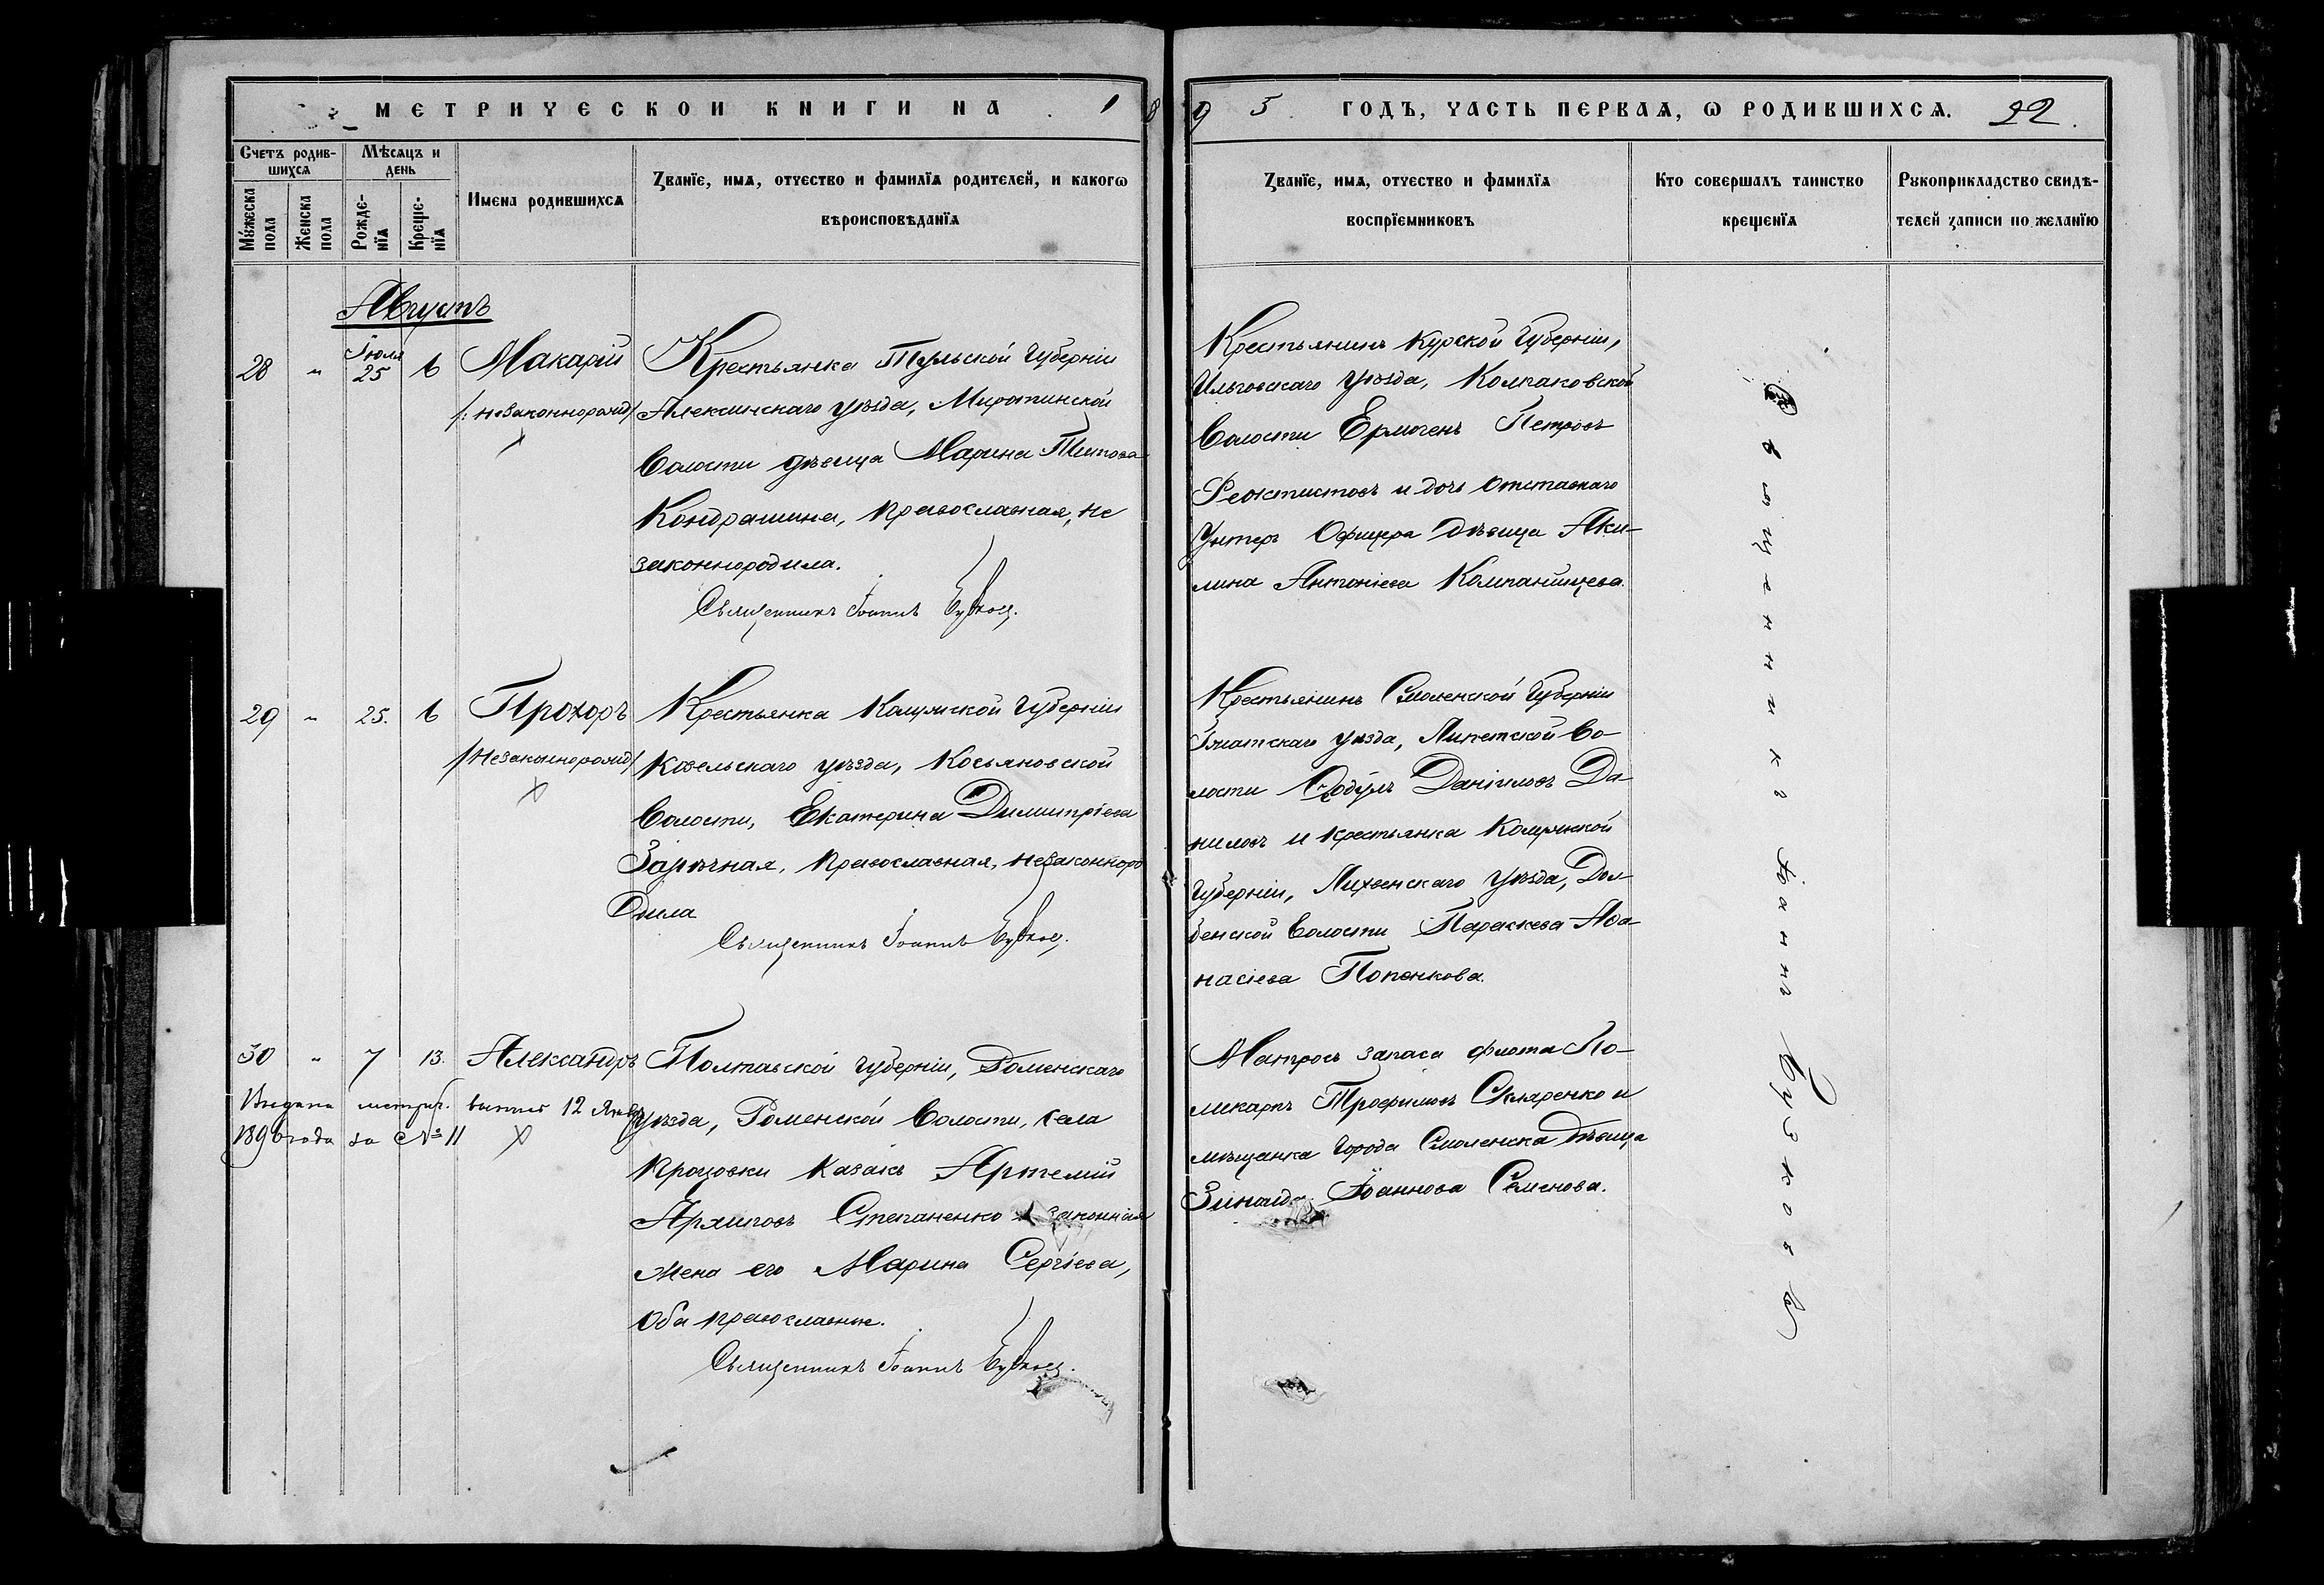 МЕТРИЧЕСКОЙ КНИГИ НА 1895 ГОДЪ, ЧАСТЬ ПЕРВАЯ, Ѡ РОДИВШИХСЯ. 22.
Счетъ родив-
шихся
Мѣсяцъ и
день
Мужеска
пола
Женска
пола
Рожде-
нїя
Креще-
нїя
Имена родившихся
Званїе, имя, отчество и фамилїя родителей, и какогѡ
вѣроисповѣданїя
Званїе, имя, отчество и фамилїя
воспрїемниковъ
Кто совершалъ таинство
крещенїя
Рукоприкладство свидѣ-
телей записи по желанїю
Августъ
28 „ Іюля 25 6 Макарій
/:незаконнорожд/
Крестьянка Тульской Губерніи
Алексинскаго уѣзда,
Волости дѣвица Марина Титова
Кондрашина, православная, не
законнородила.
Священникъ Іоаннъ
Крестьянинъ Курской Губерніи,
уѣзда, Колпаковской
Волости Ермогенъ Петровъ
Феоктистовъ и дочь отставнаго
Унтеръ Офицера дѣвица Аки-
лина Антоніева Компанійцева.
29 „ 25. 6 Прохоръ
/Незаконнорожд/
Крестьянка Калужской Губерніи
Козельскаго уѣзда, Косьяновской
Волости, Екатерина Димитріева
Зарѣчная, православная, незаконноро
дила
Священникъ Іоаннъ
Крестьянинъ Смоленской Губерніи
Гжатскаго уѣзда, Липетской Во-
лости Даніиловъ Да-
ниловъ и крестьянка Калужской
Губерніи, Лихвенскаго уѣзда, Дол-
бенской Волости Параскева Аѳа-
насіева Попенкова.
30 „ 7 13. Александръ
Выдана метрич. выпись 12 Янв.
1896 года за № 11
Полтавской Губерніи, Роменскаго
уѣзда, Роменской Волости, села
Процовки казакъ Артемій
Архиповъ Степаненко и законная
жена его Марина Сергіева,
оба православные.
Священникъ Іоаннъ
Матросъ запаса флота По-
ликарпъ Трофимовъ Скляренко и
мѣщанка города Смоленска дѣвица
Зинаида Іоаннова Семенова.
Священникъ Іоаннъ